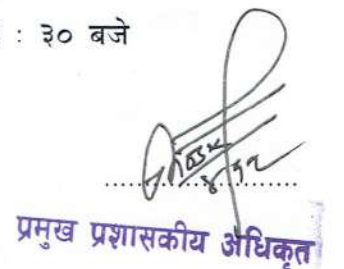 : ३० बजे
प्रमुख प्रशासकीय अधिकृत